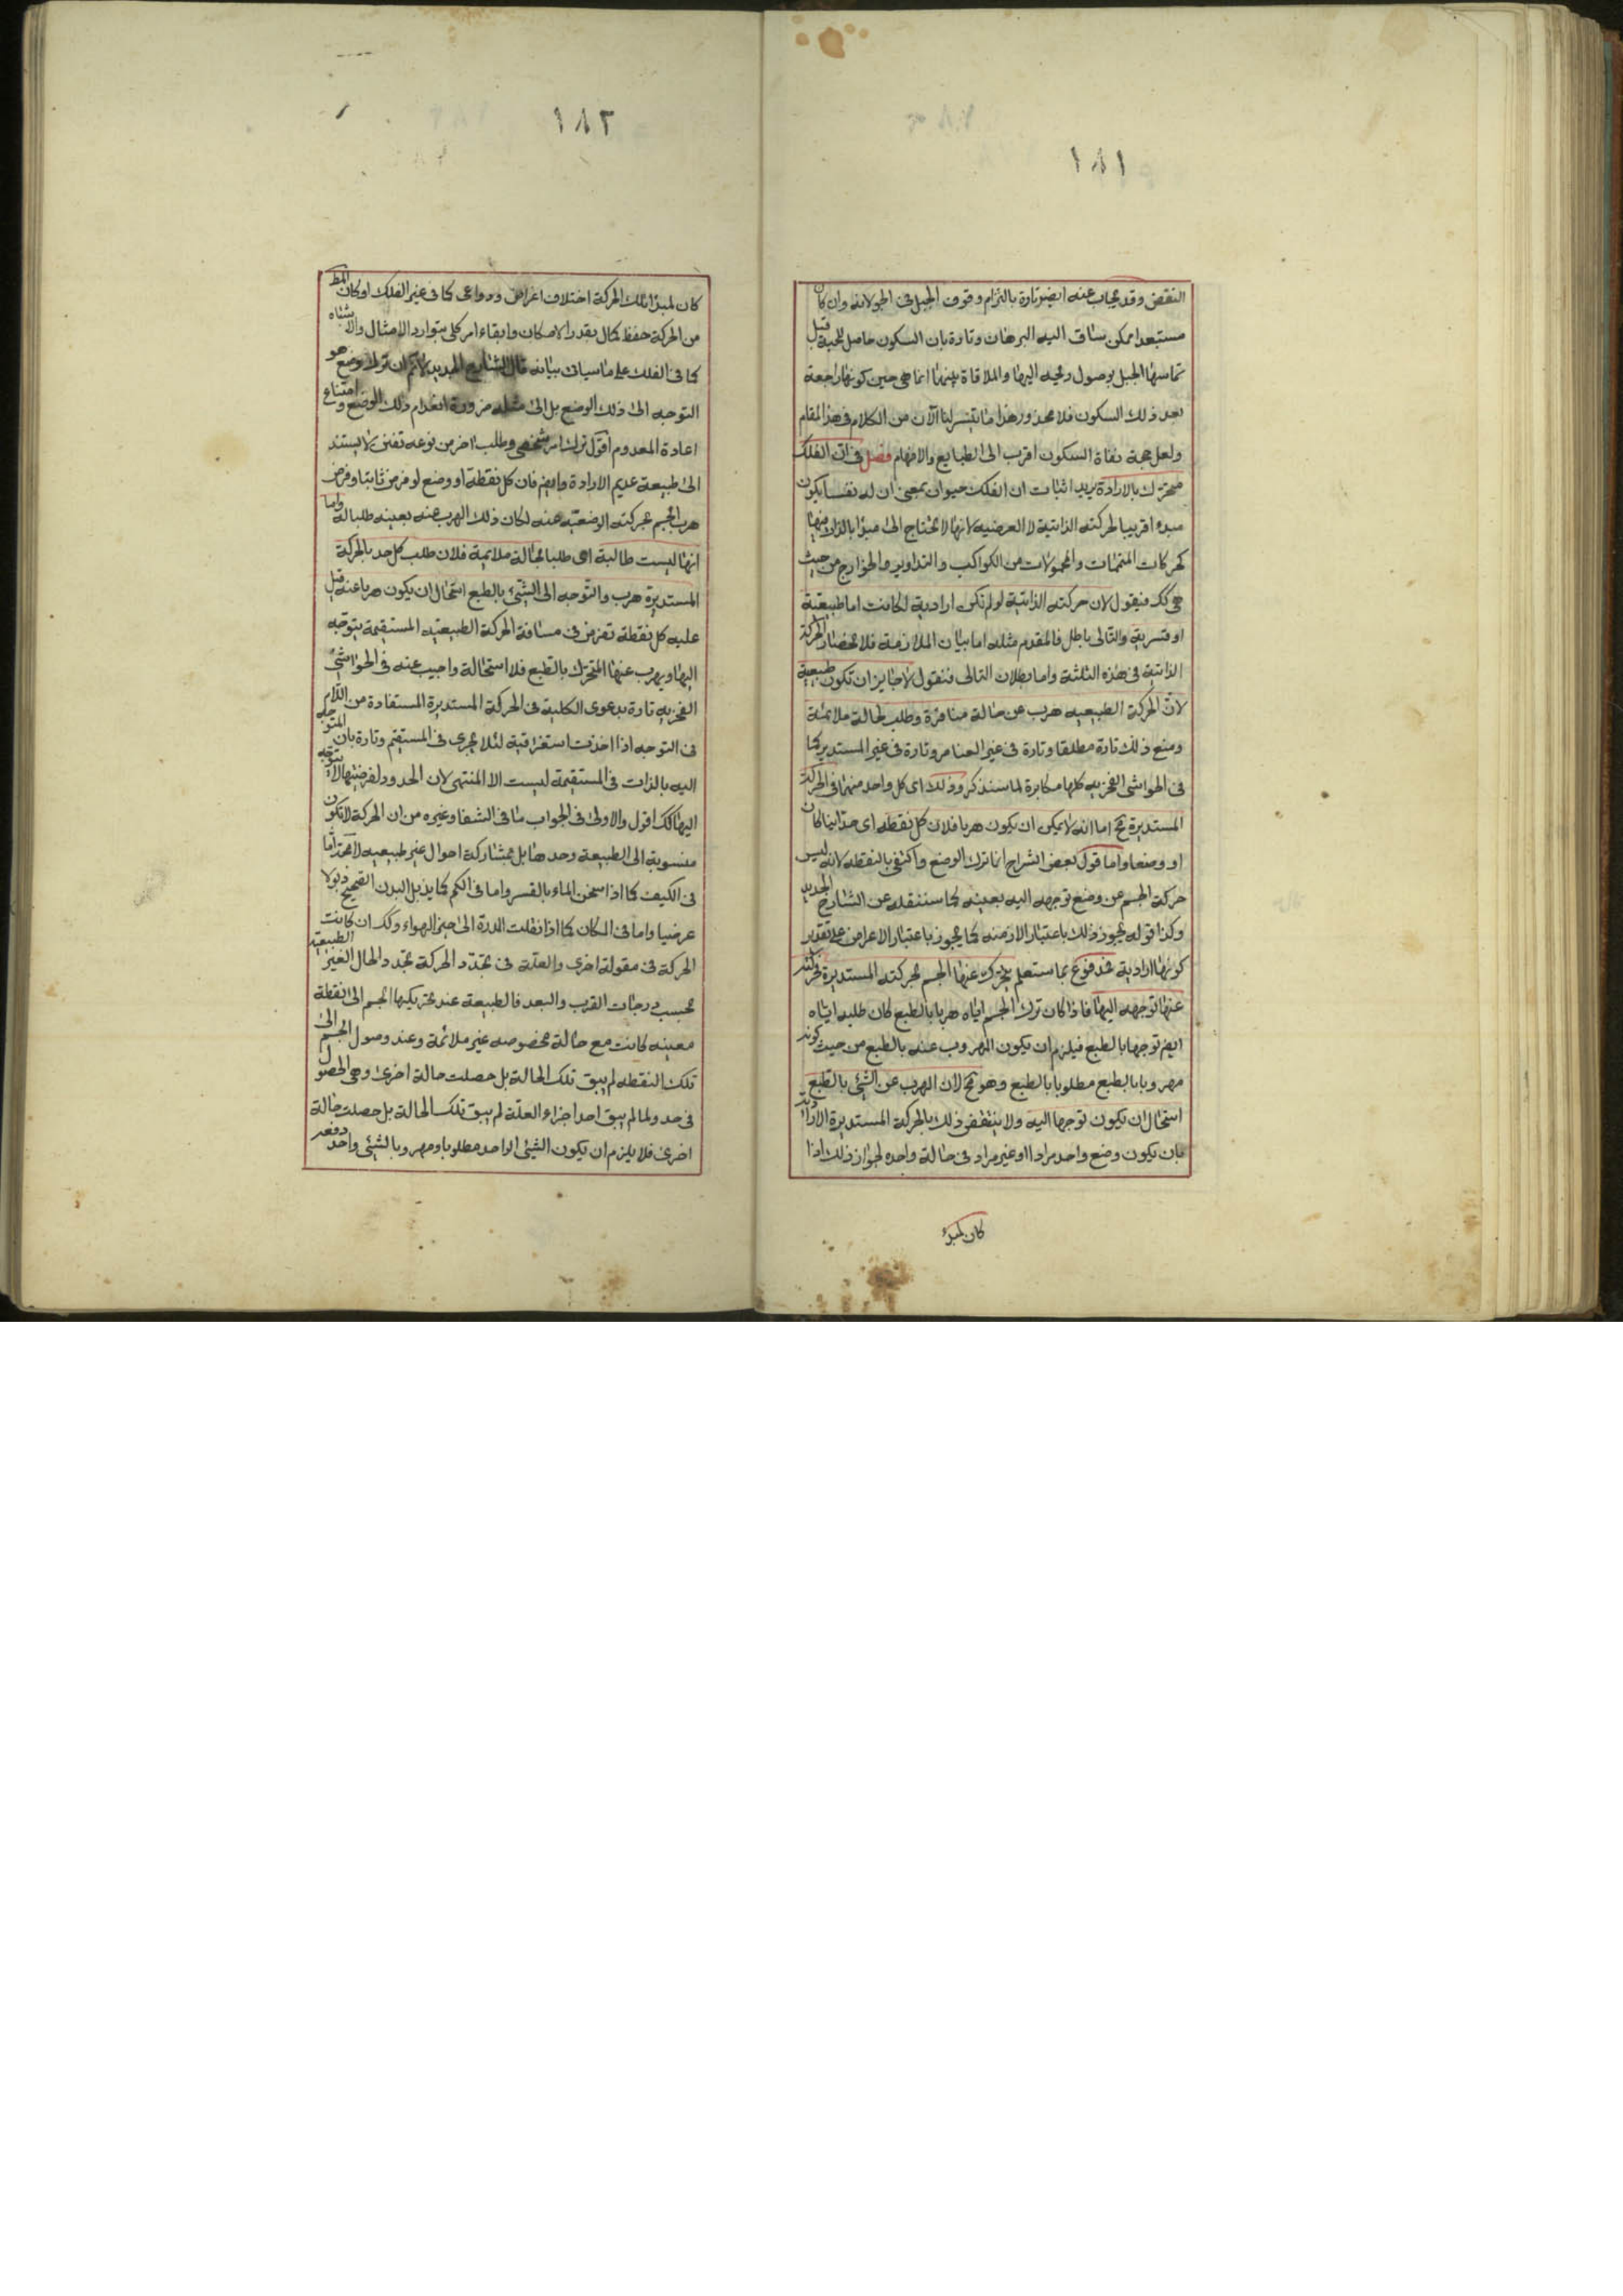 ١٨١
النقض وقد يجاب عنه ايضا تارة بالتزام وقوف الجبل فى الجو لانه وان كان
مستبعدا ممكن ساق اليه البرهان وتارة بان السكون حاصل للحبة قبل
تماسها الجبل بوصول ريحه اليها والملاقاة بينهما انما هى حين كونها راجعة
بعد ذلك السكون فلا محذور هذا ما تيسر لنا الآن من الكلام فى هذا المقام
ولعل حجة نفاة السكون اقرب الى الطبايع والافهام فصل فى ان الفلك
متحرك بالارادة يريد اثبات ان الفلك حيوان بمعنى ان له نفسا يكون
مبدء اقريبا لحركته الذاتية لا العرضيه لانها لا تحتاج الى مبدا بالذات فيها
كحركات المتممات والمحمولات من الكواكب والتداوير والخوارج من حيث
هى كك فنقول لان حركته الذاتية لو لم تكن ارادية لكانت اما طبيعية
او قسرية والتالى باطل فالمقدم مثله اما بيان الملازمة فلانحصار الحركة
الذاتية فى هذه الثلثة واما بطلان التالى فنقول لا جايز ان تكون طبيعية
لانّ الحركة الطبيعيه هرب عن حالة منافرة وطلب لحالة ملائمة
ومنع ذلك تارة مطلقا وتارة فى غير العناصر وتارة فى غير المستديركما
فى الحواشى الفخريه كلها مكابرة لما سنذكر وذلك اى كل واحد منهما فى الحركة
المستديرة مح اما انه لا يمكن ان يكون هربا فلان كل نقطه اى حدا اينما كان
او وضعا واما قول بعض الشراح انما ترك الوضع واكتفى بالنقطه لانه ليس
حركة الجسم عن وضع توجهه اليه بعينه كما سننقله عن الشارح الجديد
وكذا قوله يجوز ذلك باعتبار الازمنه كما يجوز باعتبار الاعراض على تقدير
كونها ارادية فمدفوع بما ستعلم يتحرك عنها الجسم بحركته المستديرة فحركته
عنها توجهه اليها فاذا كان ترك الجسم اياه هربا بالطبع كان طلبه اياه
ايضا توجها بالطبع فيلزم ان يكون المهروب عنه بالطبع من حيث كونه
مهروبا بالطبع مطلوبا بالطبع وهو مح لان الهرب عن الشئ بالطبع
استحال ان يكون توجها اليه ولا ينتقض ذلك بالحركة المستديرة الارادية
بان يكون وضع واحد مرادا او غير مراد فى حالة واحده لجواز ذلك اذا
كان لمبدء
١٨٢
كان لمبدا تلك الحركة اختلاف اغراض ودواعى كما فى غير الفلك او كان المط
من الحركة حفظ كمال بقدر الامكان وابقاء امر كلى بتوارد الامثال والاشباه
كما فى الفلك على ما سياتى بيانه قال الشارح الجديد لا نم ان ترك وضع هو
التوجه الى ذلك الوضع بل الى مثله ضرورة انعدام ذلك الوضع وامتناع
اعادة المعدوم اقول ترك امر شخصى وطلب اخر من نوعه تفنن لا يستند
الى طبيعة عديم الارادة وايضا فان كل نقطة او وضع لو فرض ثابتا وفرض
هرب الجسم بحركته الوضعيّه عنه لكان ذلك الهرب عنه بعينه طلبا له واما
انها ليست طالبة اى طلبا لحالة ملايمة فلان طلب كل حد بالحركة
المستديرة هرب والتوجه الى الشئ بالطبع استحال ان يكون هربا عنه قيل
عليه كل نقطة تفرض فى مسافة الحركة الطبيعيه المستقيمة يتوجه
اليها ويهرب عنها المتحرك بالطبع فلا استحالة واجيب عنه فى الحواشى
الفخريه تارة بدعوى الكلية فى الحركة المستديرة المستفادة من اللام
فى التوجه اذا اخذت استغراقية لئلا يجرى فى المستقيم وتارة بان المتوجه
اليه بالذات فى المستقيمة ليست الا المنتهى لان الحدود لفرضيتها لا يتوجه
اليها كك اقول والاولى فى الجواب ما فى الشفا وغيره من ان الحركة لا تكون
منسوبة الى الطبيعة وحدها بل بمشاركة احوال غير طبيعيه لامحة اما
فى الكيف كما اذا سخن الماء بالقسر واما فى الكم كما يذبل البدن الصحيح ذبولا
عرضيا واما فى المكان كما اذا نقلت المدرة الى حيز الهواء وكك ان كانت
الحركة فى مقولة اخرى والعلّة فى تجدّد الحركة تجدّد الحال الغير الطبيعية
بحسب درجات القرب والبعد فالطبيعة عند تحريكها الجسم الى نقطة
معينه كانت مع حالة مخصوصه غير ملائمة وعند وصول الجسم الى
تلك النقطه لم يبق تلك الحالة بل حصلت حالة اخرى وهى الحصول
فى حد ولما لم يبق احد اجزاء العلّة لم يبق تلك الحالة بل حصلت حالة
اخرى فلا يلزم ان يكون الشئ الواحد مطلوبا ومهروبا بالشئى واحد دفعه